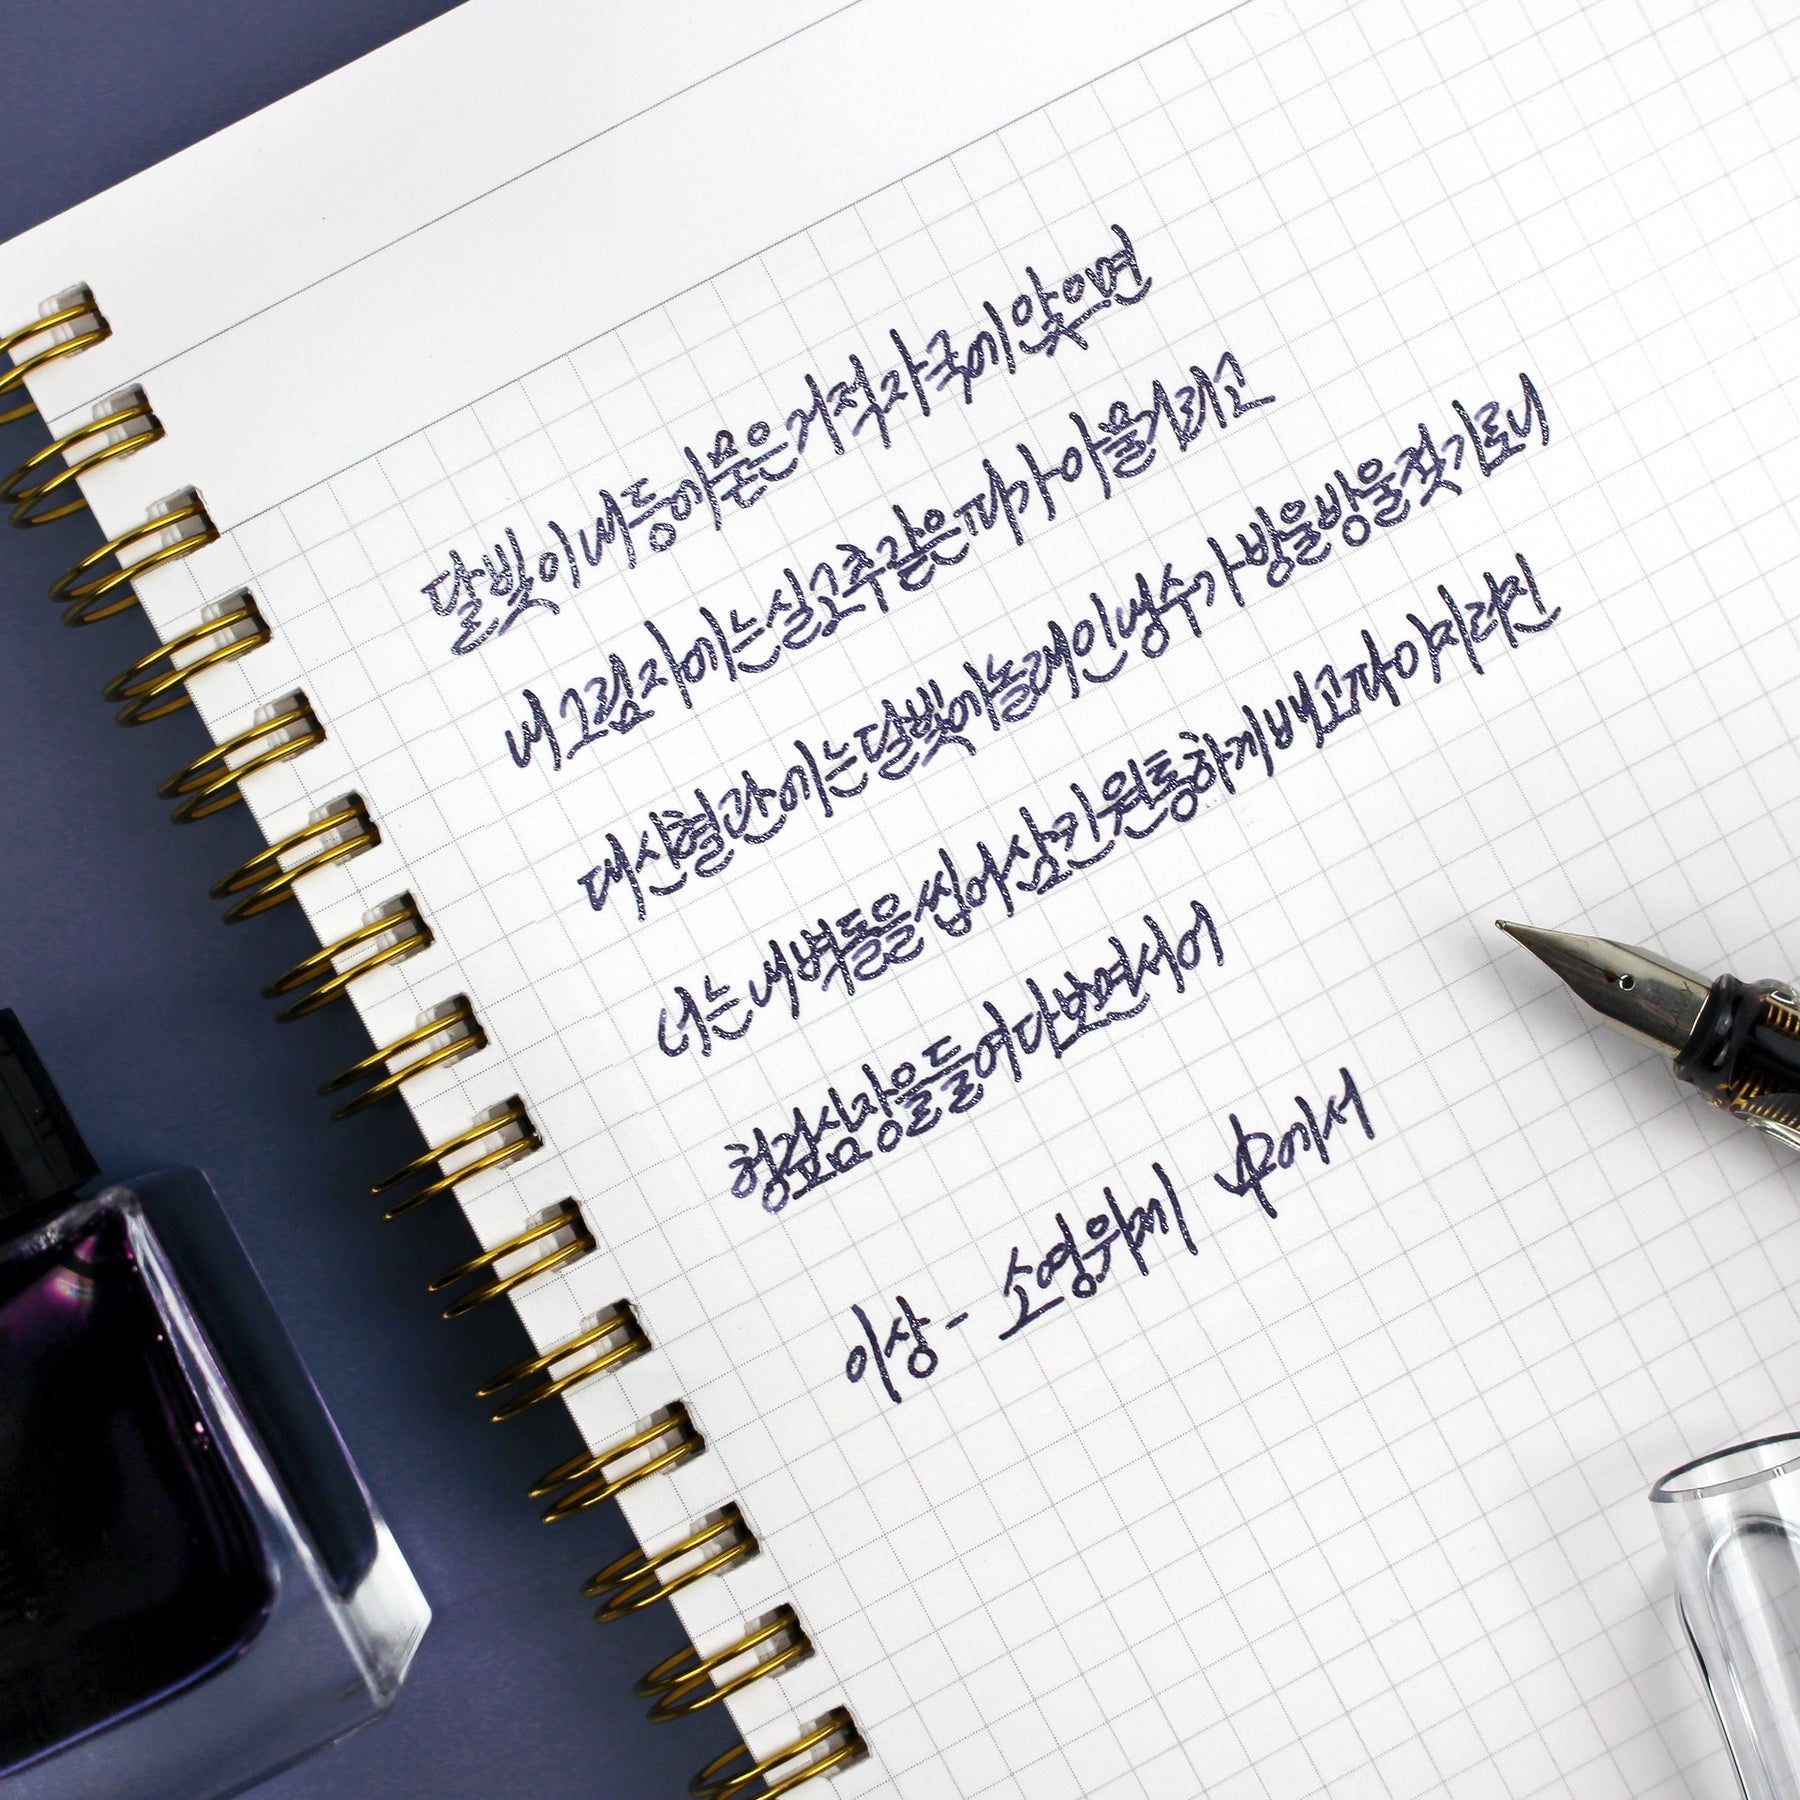 달빛이내등에묻은거적자국에앉으면
내그림자에는실고추같은피가아물거리고
대신혈관에는달빛에놀래인냉수가방울방울젖기로니
너는내벽돌을씹어삼킨원통하게배고파이지러진
헝겊심장을들여다보면서어
이상 - 소영위제 中에서